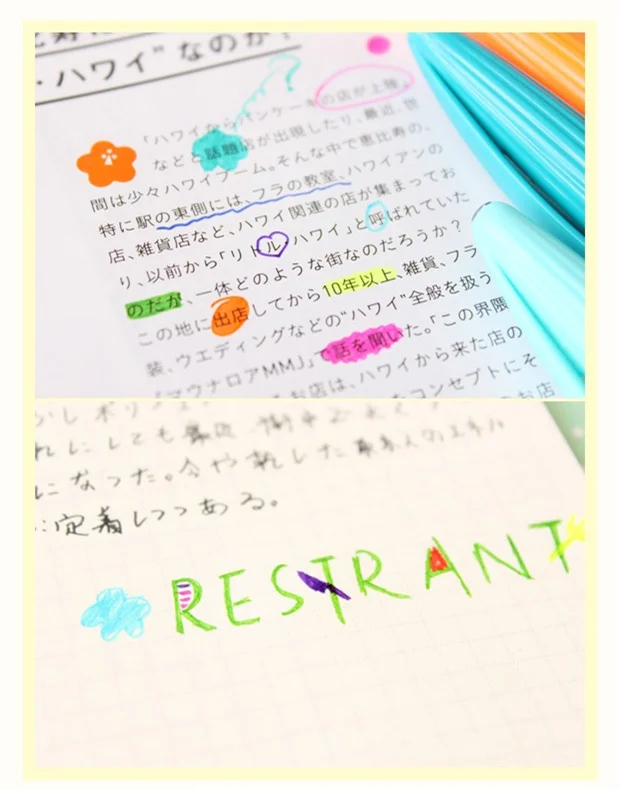 ・ハワイ”なのか？
「ハワイならパンケーキの店が上陸。
などと話題店が出現したり、最近、世
間は少々ハワイブーム。そんな中で恵比寿の、
特に駅の東側には、フラの教室、ハワイアンの
店、雑貨店など、ハワイ関連の店が集まってお
り、以前から「リトル・ハワイ」と呼ばれていた
のだが、一体どのような街なのだろうか？
この地に出店してから10年以上、雑貨、フラ
装、ウエディングなどの“ハワイ”全般を扱う
「マウナロアMMJ」で話を聞いた。「この界隈
お店は、ハワイから来た店の
コンセプトにそ
のお店
れにしても最近
になった。今や
定着しつつある。
RESTRANT